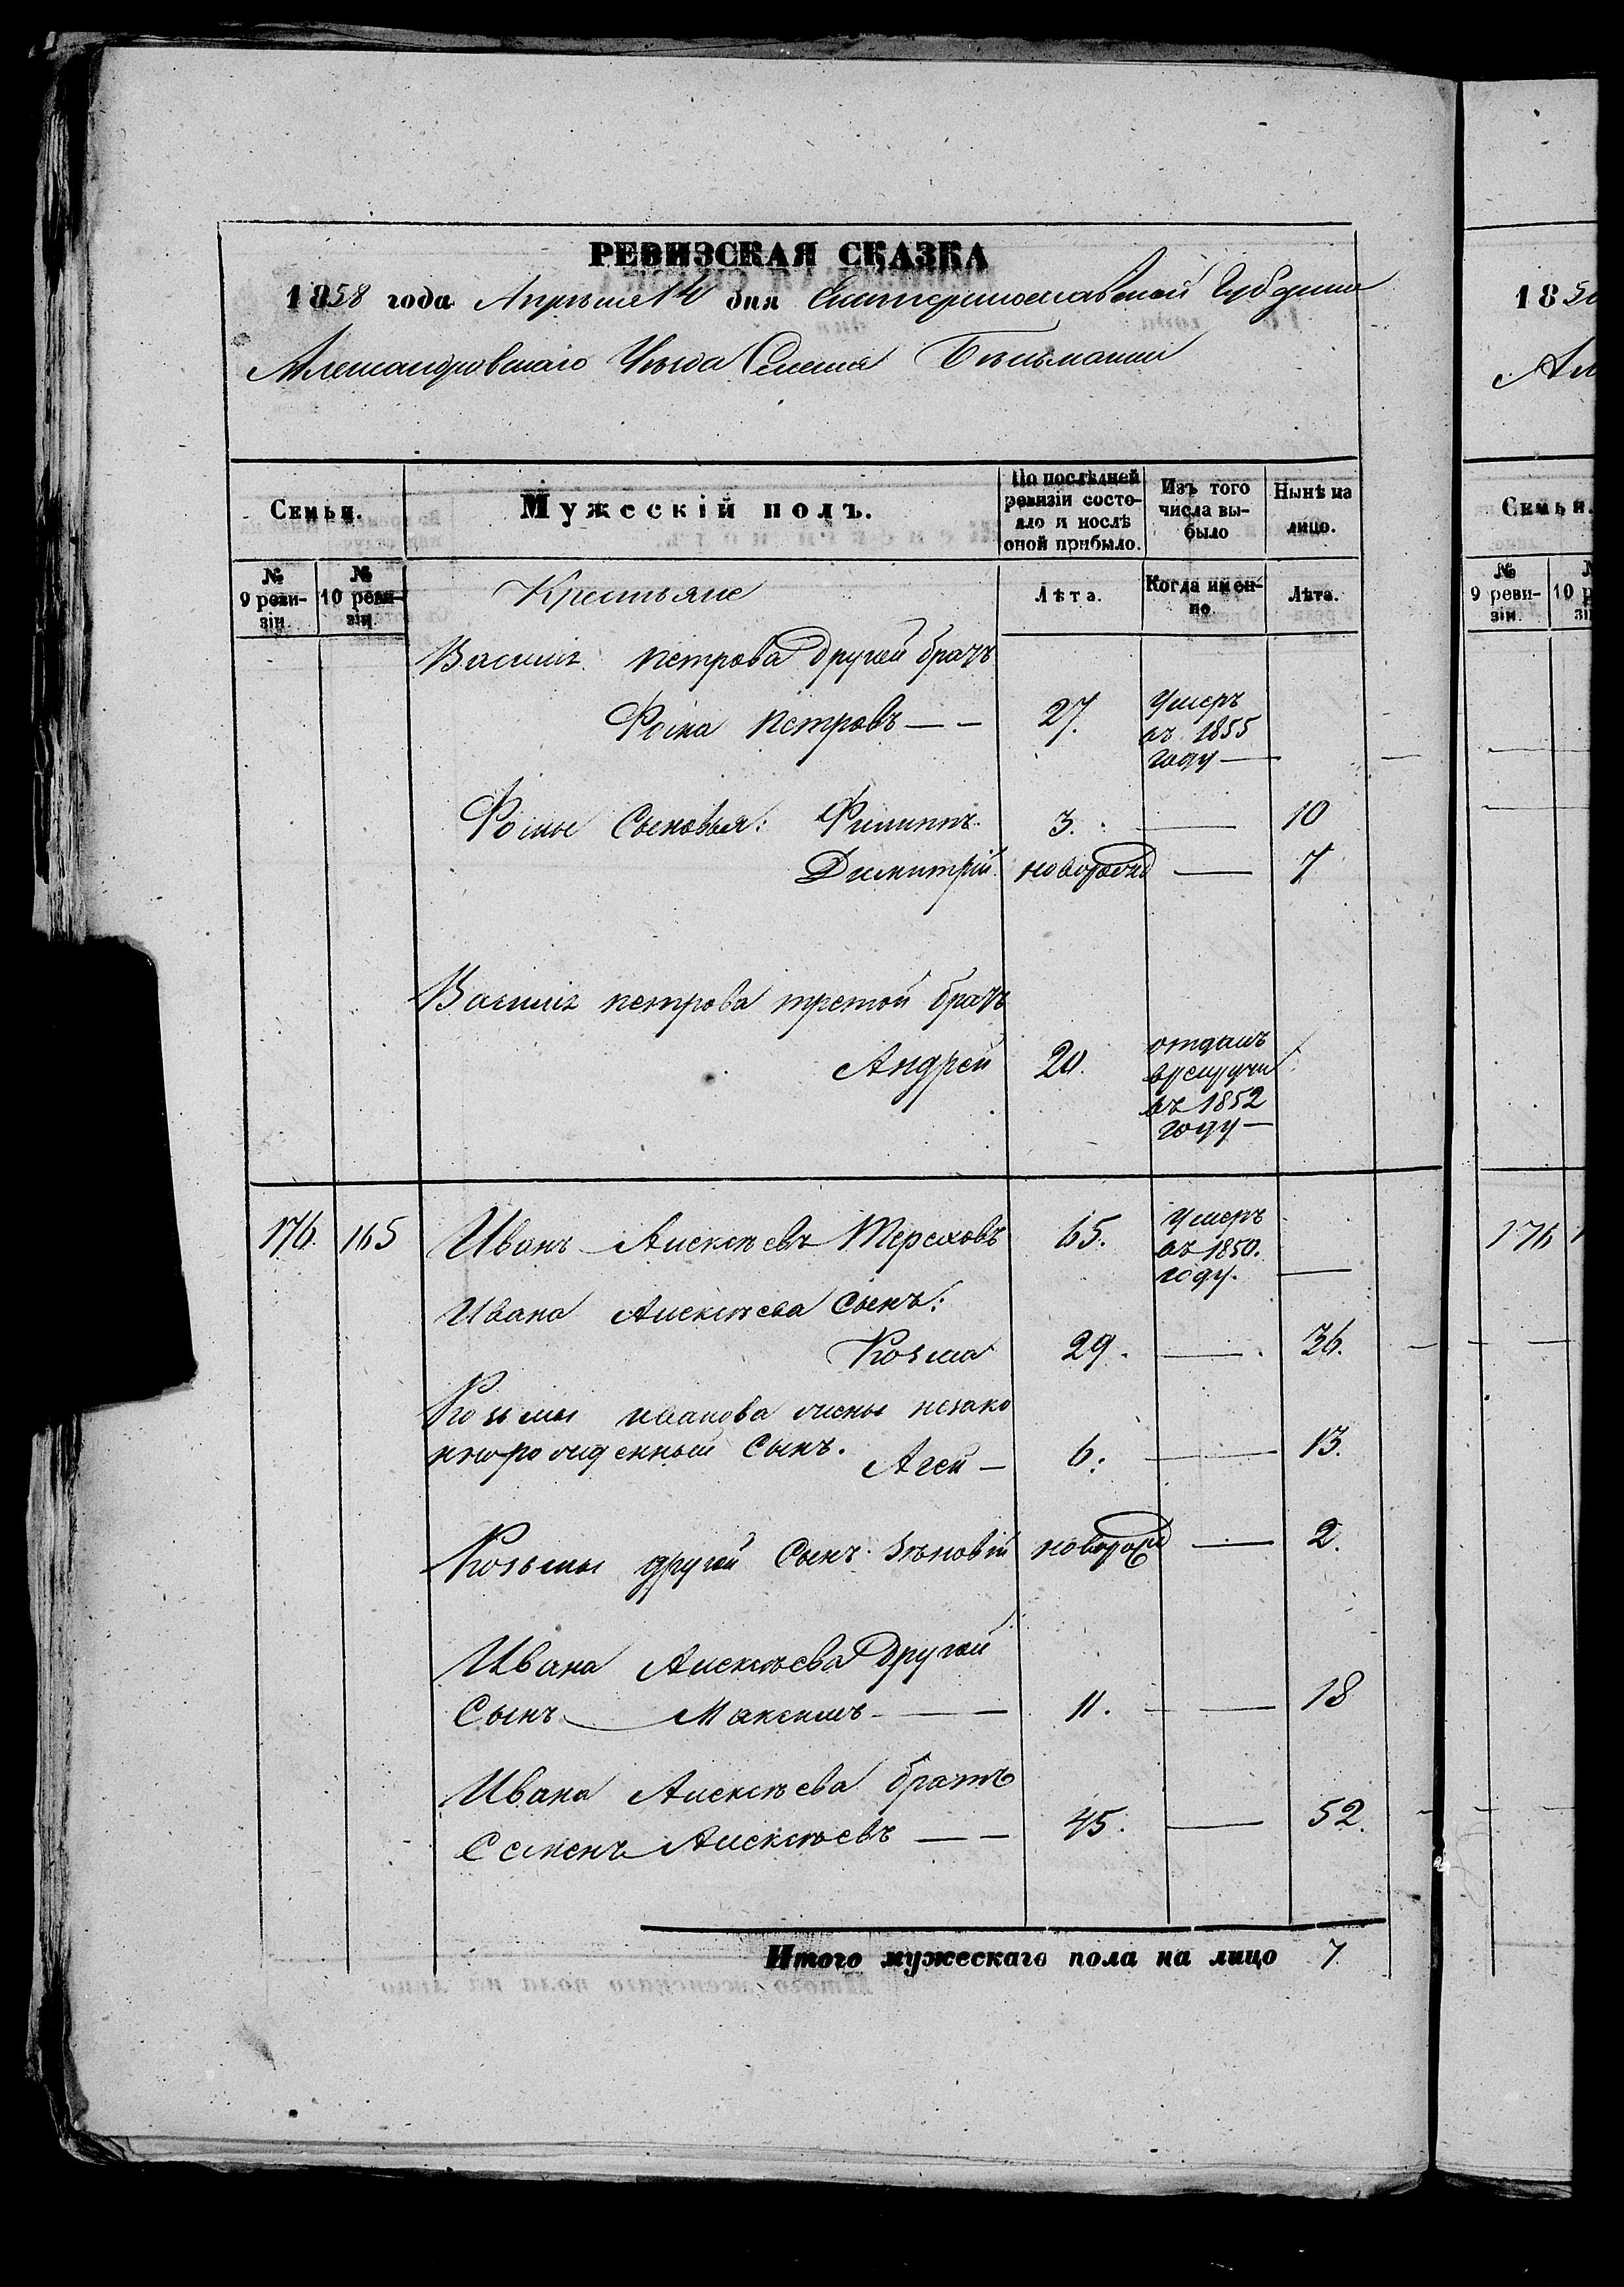 РЕВИЗСКАЯ СКАЗКА
1858 года Апрѣля 14 дня Екатеринославской Губерніи
Александровскаго Уѣзда Селенія Бѣльманки
Семьи.
Мужескій полъ.
По послѣдней ревизіи состояло и послѣ оной прибыло.
Изъ того числа выбыло
Нынѣ на лицо.
№ 9 ревизіи.
№ 10 ревизіи.
Крестьяне
Лѣта.
Когда именно.
Лѣта.
Василія петрова другой братъ
Фома петровъ — — 27. Умеръ въ 1855 году —
Фомы Сыновья: Филиппъ. 3. — 10
Димитрій. новорожд — 7
Василія петрова третой братъ
Андрей 20. отданъ врекруты въ 1852 году —
176. 165 Иванъ Алексѣевъ Тереховъ 65. Умеръ въ 1850. году. —
Ивана Алексѣева Сынъ:
Козма 29. — 36.
Козьмы иванова жены незако
ннорожденный Сынъ. Агей — 6. — 13.
Козьмы другой Сынъ Зѣновій новорожд — 2.
Ивана Алексѣева Другой
Сынъ Максимъ — — 11. — 18
Ивана Алексѣева братъ
Семенъ Алексѣевъ — — 45. — 52.
Итого мужескаго пола на лицо 7
185
Ал
Семьи.
№ 9 ревизіи.
10
176